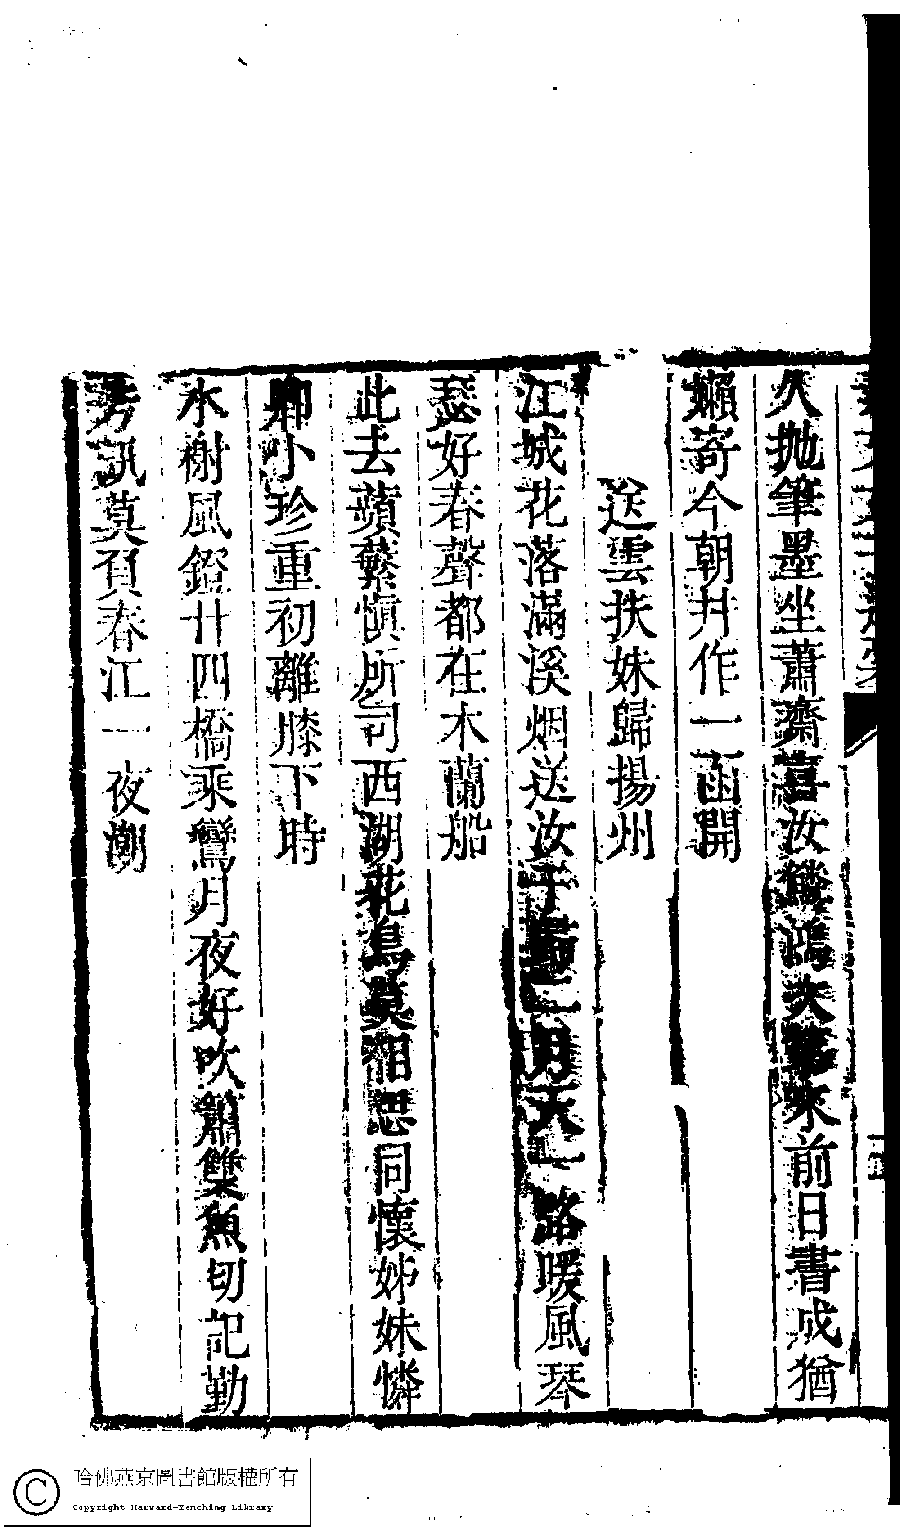 久抛筆墨坐蕭齋喜汝鱗鴻次第來前日書成猶
嬾寄今朝幷作一函開
送雲扶妹歸揚州
江城花落滿溪烟送汝于歸二月天一路暖風琴
瑟好春聲都在木蘭船
此去蘋蘩愼所司西湖花鳥莫相思同懷姊妹憐
卿小珍重初離膝下時
水榭風鐙廿四橋乘鸞月夜好吹簫雙魚切記勤
芳訊莫負春江一夜潮
哈佛燕京圖書館版權所有
Copyright Harvard-Yenching Library